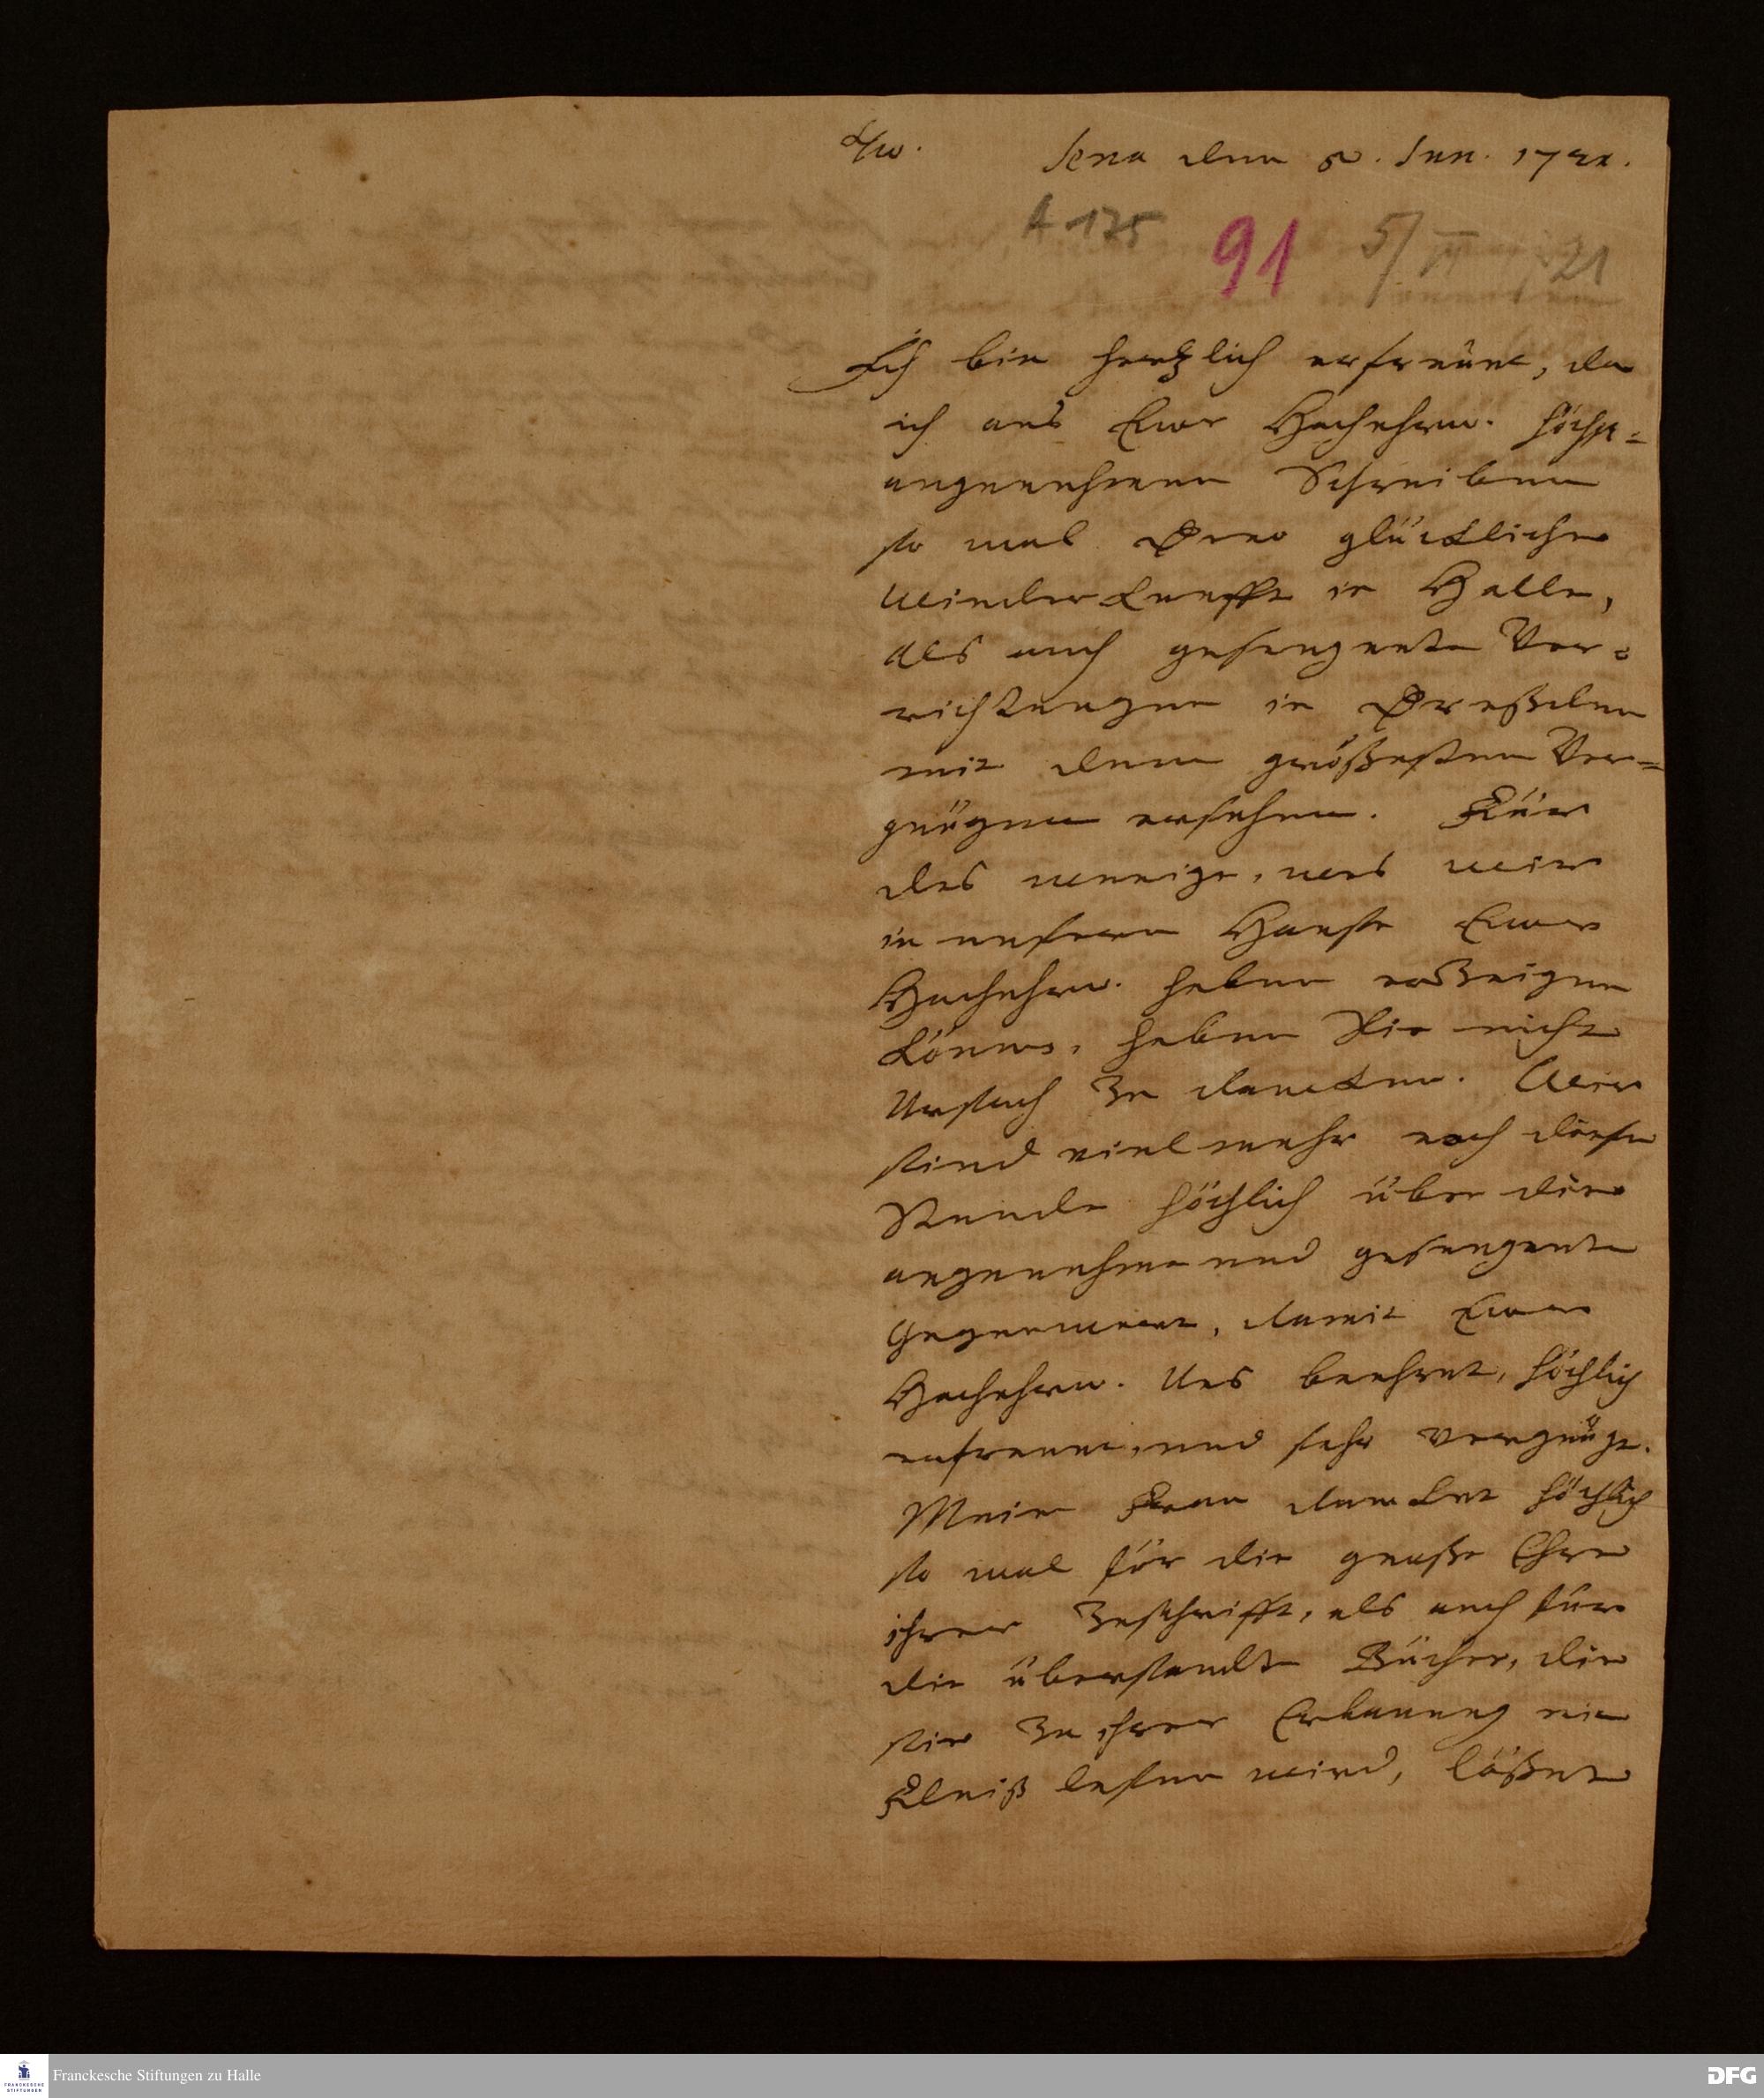 Jena den 5. Jun. 1721.
A 175 91 5/VI 21
Ich bin hertzlich erfreuet, da
ich aus Ewr Hochehrw. höchst=
angenehmen Schreiben
so wol Dero glückliche
Wiederkunfft in Halle,
als auch gesegnete Ver=
richtungen in Dreßden
mit dem größesten Ver=
gnügen ersehen. Für
das wenige, was wir
in unserm Hause Ewer
Hochehrw. haben erzeigen
können, haben Sie nicht
Ursach zu dancken. Wir
sind vielmehr noch diese
Stunde höchlich über die
angenehme und gesegnete
Gegenwart, damit Ewer
Hochehrw. Uns beehret, höchlich
erfreuet, und sehr vergnügt.
Meine Frau dancket höchlich
so wol für die große Ehre
ihrer Zuschrifft, als auch für
die übersandte Bücher, die
sie zu ihrer Erbauung mit
Fleiß lesen wird, läßet
Franckesche Stiftungen zu Halle
FRANCKESCHE
STIFTUNGEN
DFG